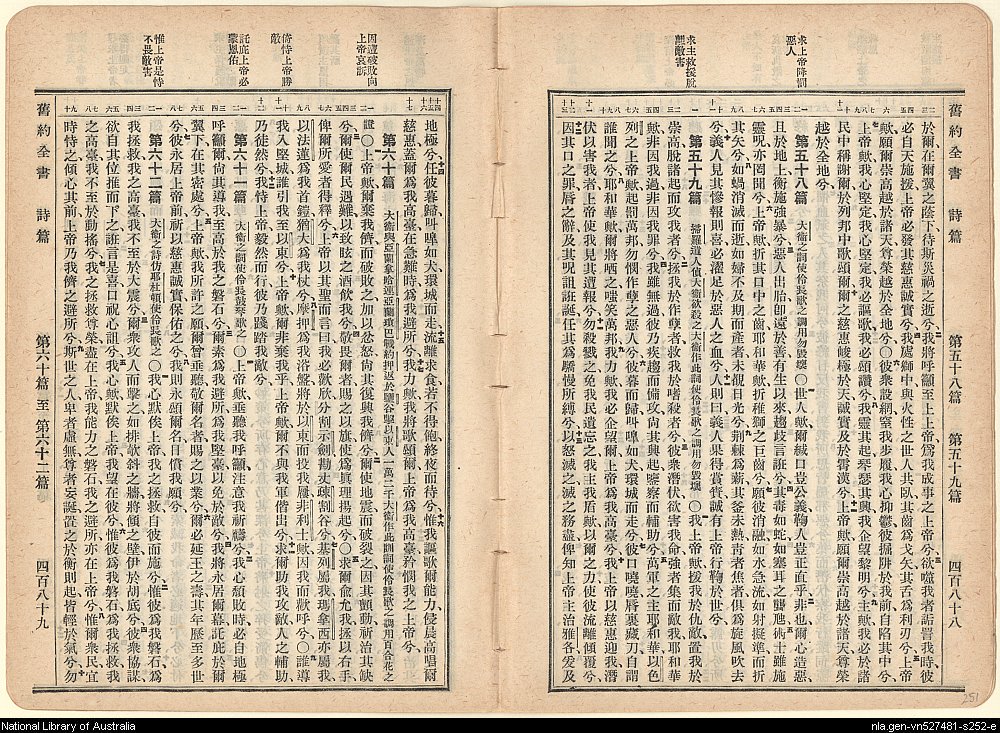 舊約全書 詩篇 第五十八篇 第五十九篇 四百八十八
求上帝降罰
惡人
求主救援脫
離敵害
於爾在爾翼之蔭下待斯災禍之逝兮我將呼籲至上上帝爲我成事之上帝兮欲噬我者詬詈我時彼
必自天施援上帝必發其慈惠誠實兮我處獅中與火性之世人共臥其齒爲戈矢其舌爲利刃兮上帝
歟願爾崇高越於諸天尊榮越於全地兮彼衆設網罟我步履我心抑鬱彼掘阱於我前自陷其中兮
上帝歟我心堅定我心堅定我必謳歌我必頌讚兮我靈其起琴瑟其興我企望黎明兮主歟我必於
民中稱謝爾於列邦中歌頌爾爾之慈惠峻極於天誠實及於霄漢兮上帝歟願爾崇高越於諸天尊榮
越於全地兮
第五十八篇 大衞之詞使伶長歌之調用勿毀壞 ○世人歟爾緘口豈公義鞫人豈正直乎非也爾心造惡
且於地上衡施強暴兮惡人出胎卽遠於善有生以來趨歧言誑兮其毒如蛇如塞耳之虺術士雖施
靈咒亦罔聞兮上帝歟折其口中之齒耶和華歟折稚獅之巨齒兮願彼消融如水急流如射挺準而折
其矢兮如蝸消滅而逝如婦不及期而產者未覩日光兮荊棘爲薪其釜未熱青者焦者俱爲旋風吹去
兮義人見其慘報則喜必濯足於惡人之血兮人則曰義人果得賞賚誠有上帝行鞫於世兮
第五十九篇 掃羅遣人偵大衞欲殺之大衞作此詞使伶長歌之調用勿毀壞 ○我上帝歟拯我於仇敵置我於
崇高脫諸起而攻我者兮拯我於作孽者救我於嗜殺者兮彼衆潛伏欲害我命強者集而敵我耶和華
歟非因我過非因我罪兮我雖無過彼乃疾趨而備攻尙其興起鑒察而輔助兮萬軍之主耶和華以色
列之上帝歟起罰萬邦勿憫作孽之惡人兮彼暮而歸叫嘷如犬環城而走兮彼口嘵嘵唇裏藏刀自謂
誰聞之兮耶和華歟爾將哂之嗤笑萬邦我力歟我必企望爾上帝爲我高臺兮我上帝將以慈惠迎我
伏以害我者上帝使我見其遭報兮勿殺戮之免我民遺忘之我主我盾歟以爾之力使彼流離傾覆兮
因其口之罪唇之辭及其咒詛誕誑任其爲驕慢所縛兮以怒滅之滅之務盡俾知上帝主治雅各爰及
因遭破敗向
上帝哀訴
倚恃上帝勝
敵
託庇上帝必
蒙恩佑
惟上帝是恃
不畏敵害
地極兮任彼暮歸叫嘷如犬環城而走流離求食若不得飽終夜而待兮惟我謳歌爾能力侵晨高唱爾
慈惠蓋爾爲我高臺在急難時爲我避所兮我力歟我將歌頌爾上帝爲我高臺矜憫我之上帝兮
第六十篇 大衞與亞蘭拿哈連亞蘭瑣巴戰約押返於鹽谷擊以東人一萬二千大衞作此訓詞使伶長歌之調用百合花之
證 ○上帝歟爾棄我儕而破敗之加以忿怒尙其復興我儕兮爾使地震而破裂之因其顫動祈治其缺
兮爾使爾民遇難以致眩之酒飲我兮敬畏爾者賜之以旗使爲眞理揚起兮○求爾兪允我拯以右手
俾爾所愛者得釋兮上帝以其聖而言曰我必歡欣分割示劍勘丈疎割谷兮基列屬我瑪拿西亦屬我
以法蓮爲我首鎧猶大爲我杖兮摩押爲我浴盤將於以東而投我履非利士歟因我而歡呼兮誰導
我入堅城誰引我至以東兮上帝歟爾非棄我乎上帝歟爾不與我軍偕出兮求爾助我攻敵人之輔助
乃徒然兮我恃上帝毅然而行彼乃踐踏我敵兮
第六十一篇 大衞之詞使伶長鼓琴歌之 ○上帝歟垂聽我呼籲注意我祈禱兮我心頹敗時必自地極
呼籲爾尙其導我至高於我之磐石兮爾素爲我避所爲我堅臺以免於敵兮我將永居爾幕託庇於爾
翼下在其密處兮上帝歟我所許之願爾曾垂聽敬爾名者賜之以業兮爾必延王之壽其年歷至多世
兮彼永居上帝前祈以慈惠誠實保佑之兮我則永頌爾名日償我願兮
第六十二篇 大衞之詩仿耶杜頓使伶長歌之 ○我心默俟上帝我之拯救自彼而施兮惟彼爲我磐石爲
我拯救我之高臺我不至於大震兮爾衆攻人而擊之如排欹斜之牆將傾之壁伊於胡底兮彼衆協謀
欲自其位推而下之誑言是喜口祝心詛兮我心歟默俟上帝我望在彼兮惟彼爲我磐石爲我拯救我
之高臺我不至於動搖兮我之拯救尊榮盡在上帝我能力之磐石我之避所亦在上帝兮惟爾衆民宜
時恃之傾心其前上帝乃我儕之避所兮斯世之人卑者虛無尊者妄誕置之於衡則起皆輕於氣兮勿
舊約全書 詩篇 第六十篇至第六十二篇 四百八十九
251
National Library of Australia
nla.gen-vn527481-s252-e